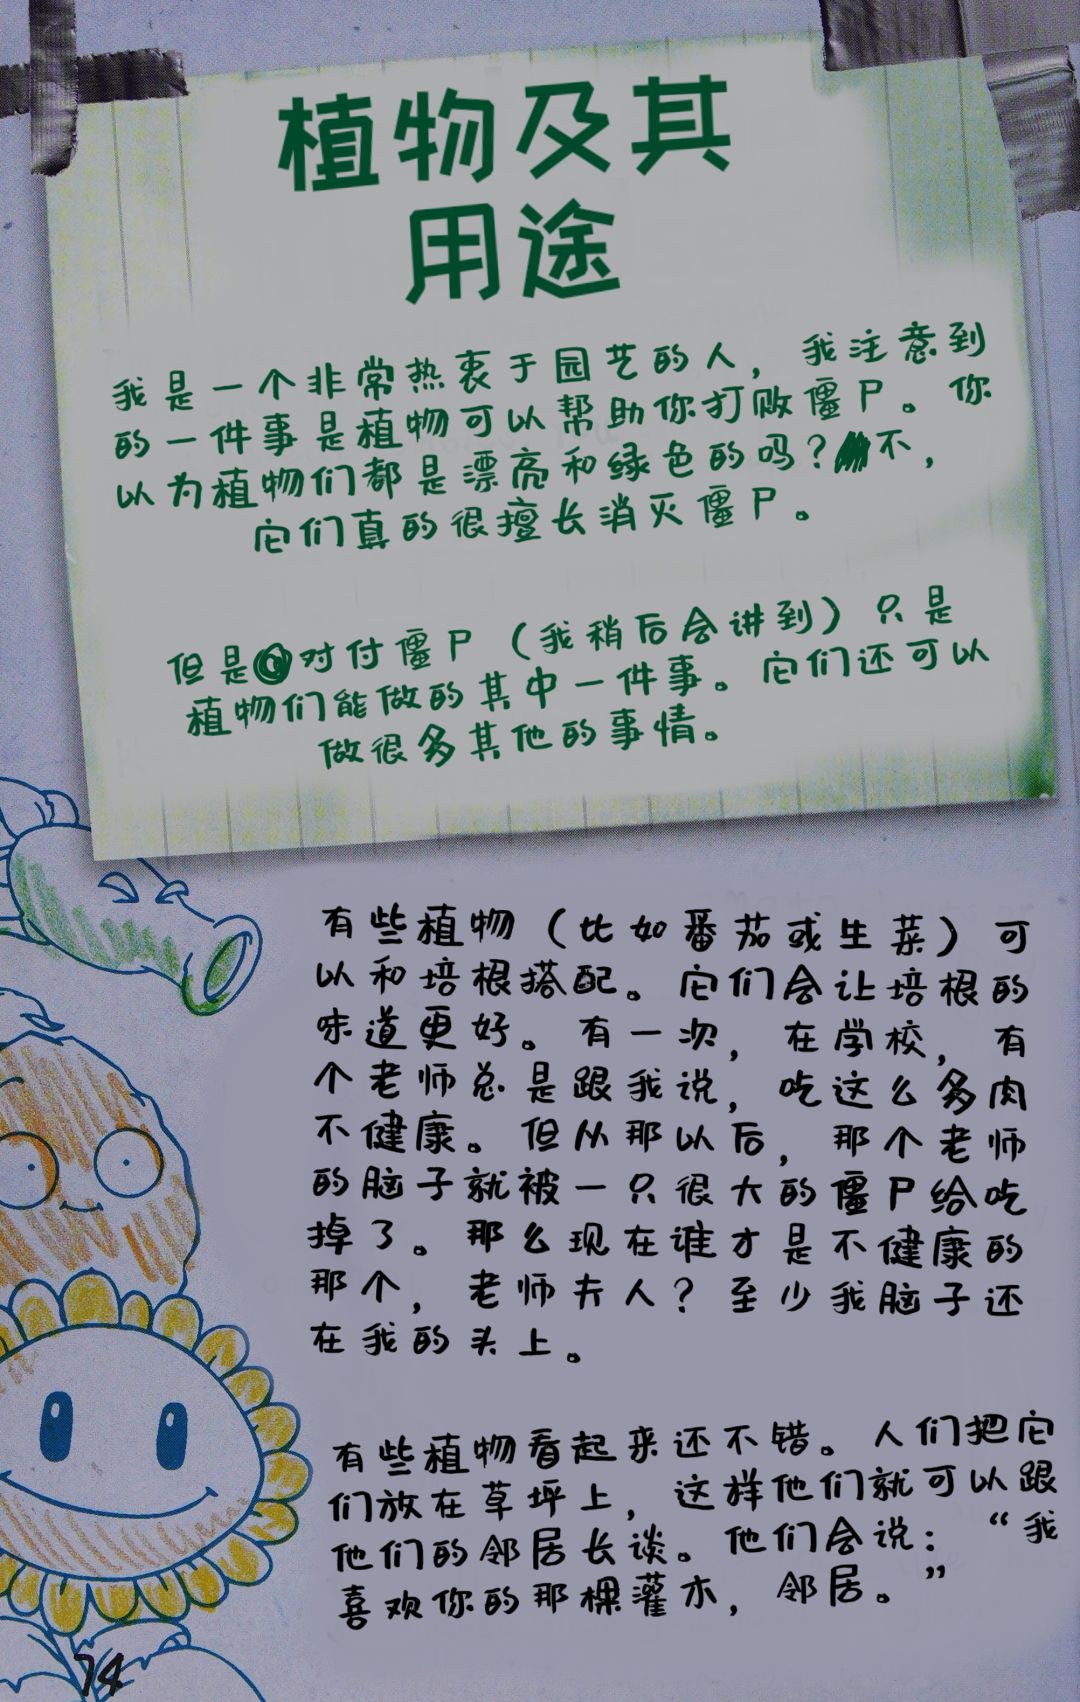 植物及其
用途
我是一个非常热衷于园艺的人，我注意到
的一件事是植物可以帮助你打败僵尸。你
以为植物们都是漂亮和绿色的吗？不，
它们真的很擅长消灭僵尸。
但是对付僵尸（我稍后会讲到）只是
植物们能做的其中一件事。它们还可以
做很多其他的事情。
有些植物（比如番茄或生菜）可
以和培根搭配。它们会让培根的
味道更好。有一次，在学校，有
个老师总是跟我说，吃这么多肉
不健康。但从那以后，那个老师
的脑子就被一只很大的僵尸给吃
掉了。那么现在谁才是不健康的
那个，老师夫人？至少我脑子还
在我的头上。
有些植物看起来还不错。人们把它
们放在草坪上，这样他们就可以跟
他们的邻居长谈。他们会说：“我
喜欢你的那棵灌木，邻居。”
74